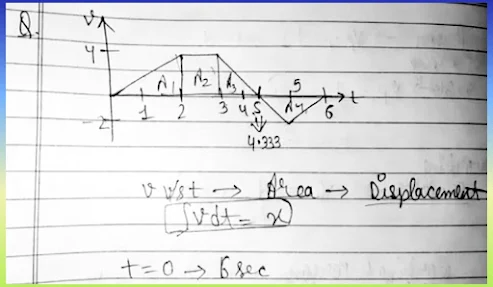 Q.
v
4
A1 A2 A3 5
1 2 3 4 5 A4 6 t
-2
4.333
v v/s t → Area → Displacement
∫vdt = x
t = 0 → 6 sec